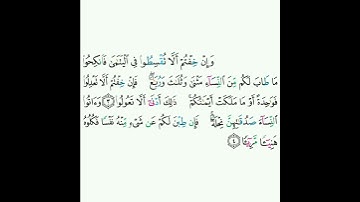 وَإِنْ خِفْتُمْ أَلَّا تُقْسِطُوا۟ فِى ٱلْيَتَـٰمَىٰ فَٱنكِحُوا۟
مَا طَابَ لَكُم مِّنَ ٱلنِّسَآءِ مَثْنَىٰ وَثُلَـٰثَ وَرُبَـٰعَ ۖ فَإِنْ خِفْتُمْ أَلَّا تَعْدِلُوا۟
فَوَٰحِدَةً أَوْ مَا مَلَكَتْ أَيْمَـٰنُكُمْ ۚ ذَٰلِكَ أَدْنَىٰٓ أَلَّا تَعُولُوا۟ ﴿٣﴾ وَءَاتُوا۟
ٱلنِّسَآءَ صَدُقَـٰتِهِنَّ نِحْلَةً ۚ فَإِن طِبْنَ لَكُمْ عَن شَىْءٍ مِّنْهُ نَفْسًا فَكُلُوهُ
هَنِيٓـًٔا مَّرِيٓـًٔا ﴿٤﴾